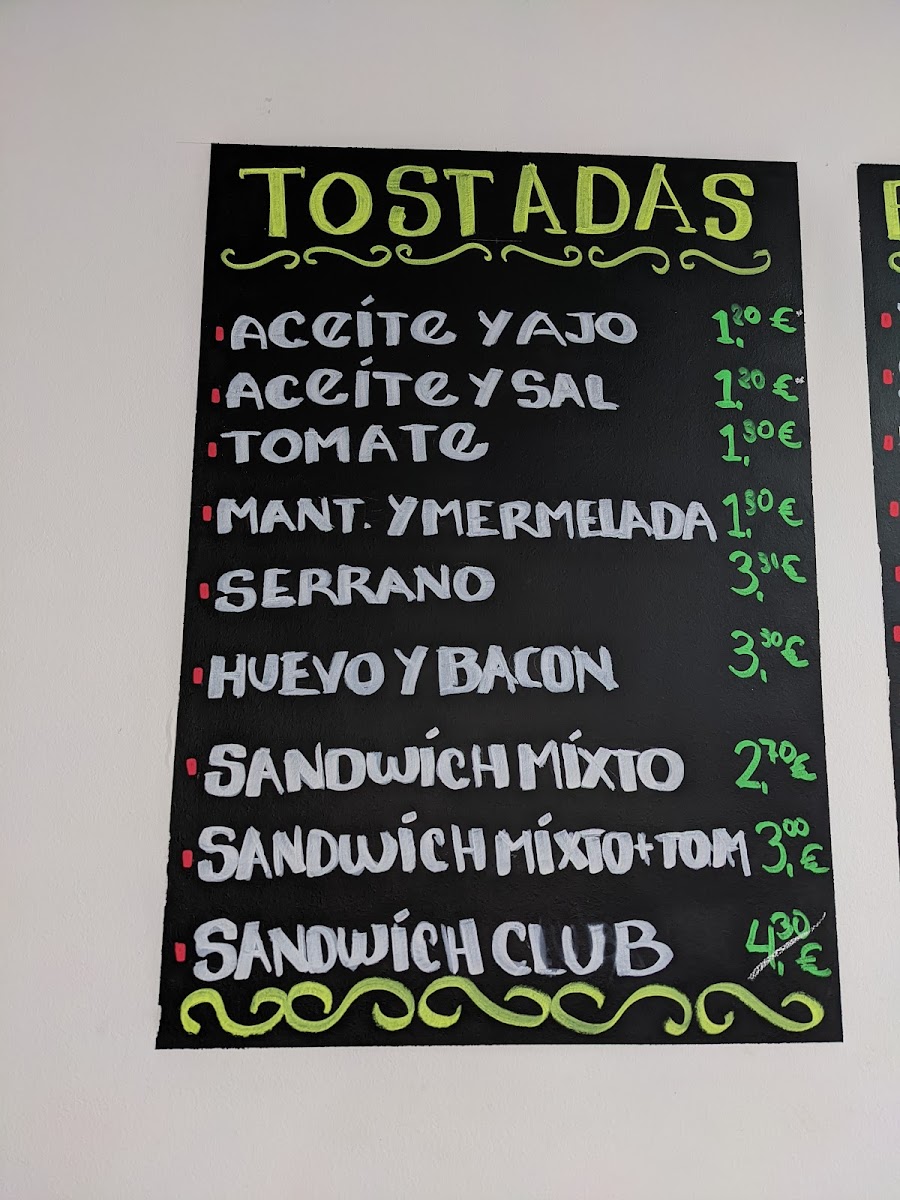 TOSTADAS
ACEÍTE Y AJO 1,20 €*
ACEÍTE Y SAL 1,20 €*
TOMATE 1,30 €
MANT. Y MERMELADA 1,80 €
SERRANO 3,30 €
HUEVO Y BACON 3,30 €
SANDWÍCH MÍXTO 2,70 €
SANDWÍCH MÍXTO+TOM 3,00 €
SANDWÍCH CLUB 4,30 €